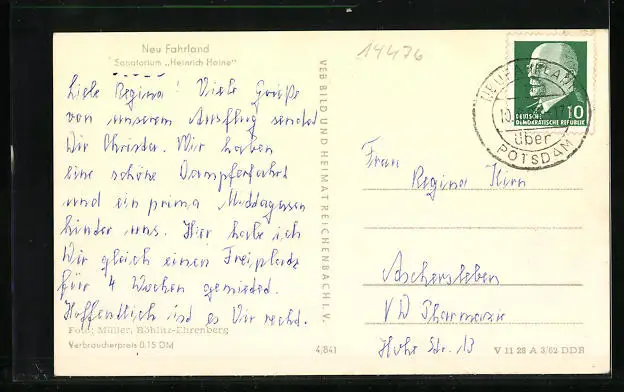 Neu Fahrland
Sanatorium „Heinrich Heine"
14476
Liebe Regina! Viele Grüße
von unserem Ausflug sendet
Dir Christa. Wir haben
eine schöne Dampferfahrt
und ein prima Mittagessen
hinter uns. Hier habe ich
Dir gleich einen Freiplatz
für 4 Wochen gemietet.
Hoffentlich ist es Dir recht.
Foto: Müller, Röhlitz-Ehrenberg
Verbraucherpreis 0,15 DM
4/841
VEB BILD UND HEIMAT REICHENBACH I. V.
DEUTSCHE
DEMOKRATISCHE REPUBLIK
10
NEU FAHRLAND
über
POTSDAM
Frau
Regina
Aschersleben
VD Pharmazie
Hohe Str. 13
V 11 28 A 3/62 DDR